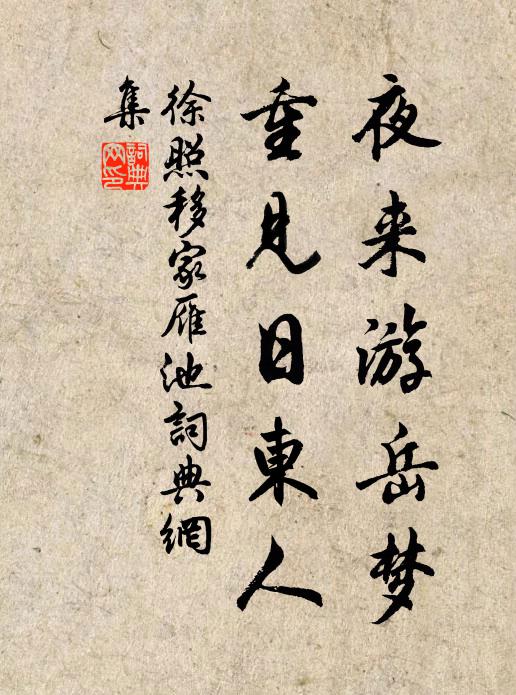 夜来游岳梦
重見日東人
徐照移家雁池詞典網
集
詞典
网印